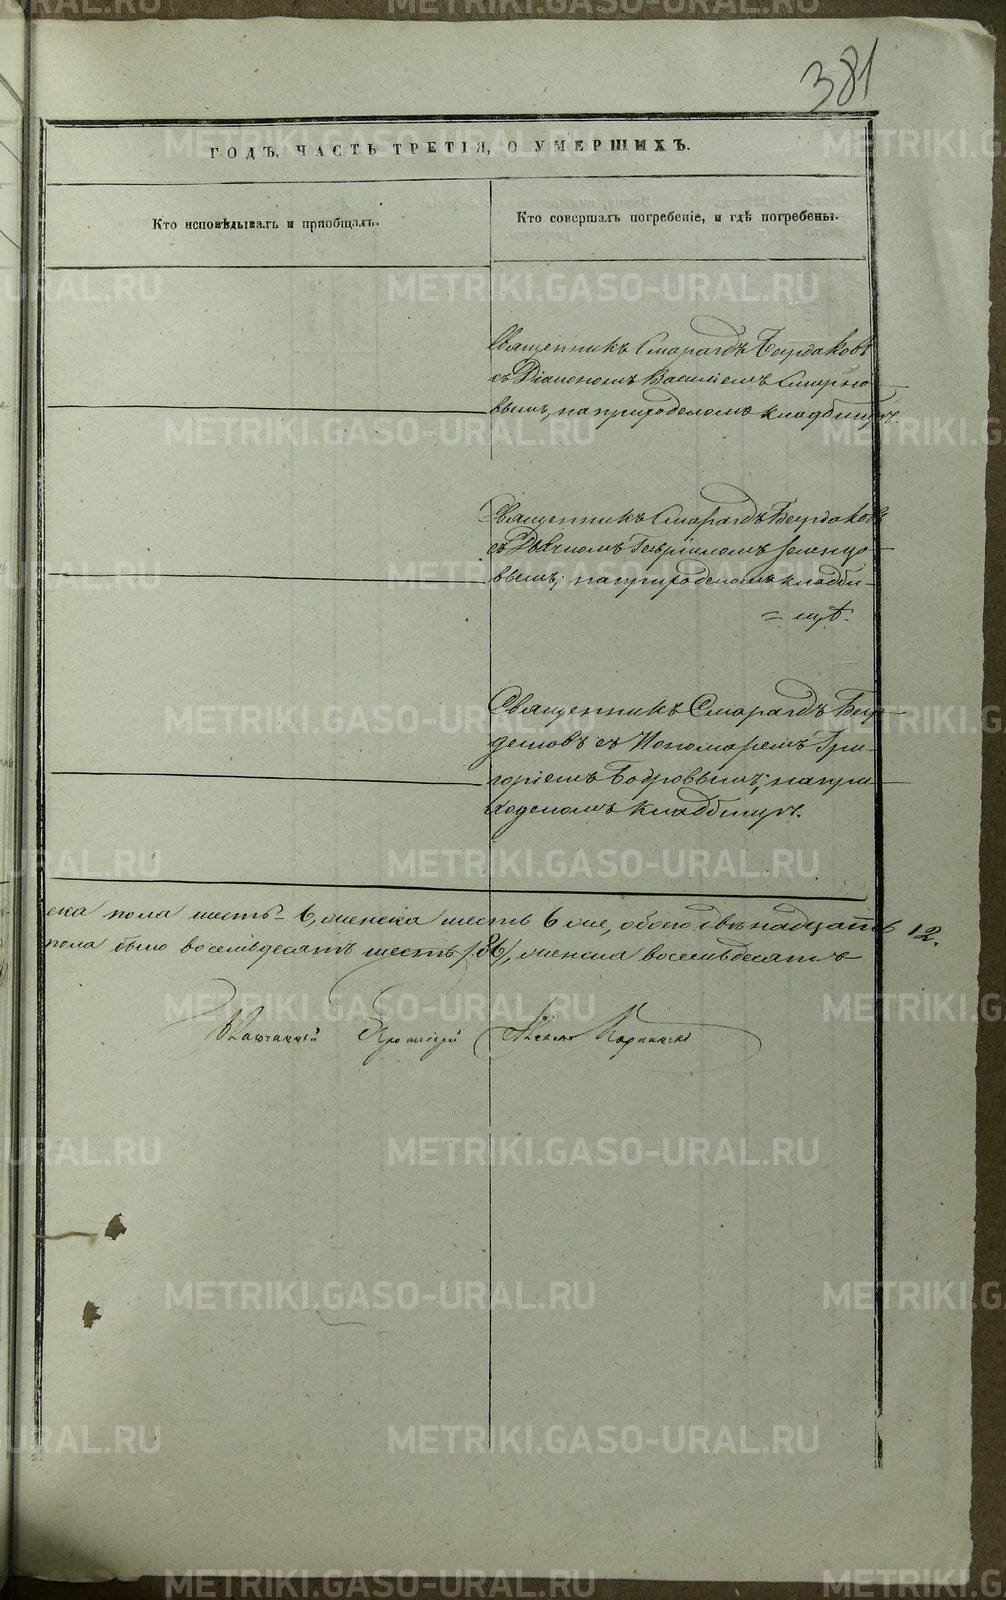 381
ГОДЪ, ЧАСТЬ ТРЕТІЯ, О УМЕРШИХЪ.
Кто исповѣдывалъ и пріобщалъ.
Кто совершалъ погребеніе, и гдѣ погребены.
Священникъ Смарагдъ Бурдаковъ
съ Діакономъ Василіемъ Смирно-
вымъ, на приходскомъ кладбищѣ.
Священникъ Смарагдъ Бурдаковъ
съ Дьячкомъ Гавріиломъ
вымъ, на приходскомъ кладби-
= щѣ.
Священникъ Смарагдъ Бур-
даковъ съ Пономаремъ Гри-
горіемъ Бобровымъ, на при-
ходскомъ кладбищѣ.
ска пола шесть 6, женска шесть 6 же, обоего двѣнадцать 12.
пола было восемьдесятъ шесть /86/, женска восемьдесятъ
Протоіерей
METRIKI.GASO-URAL.RU